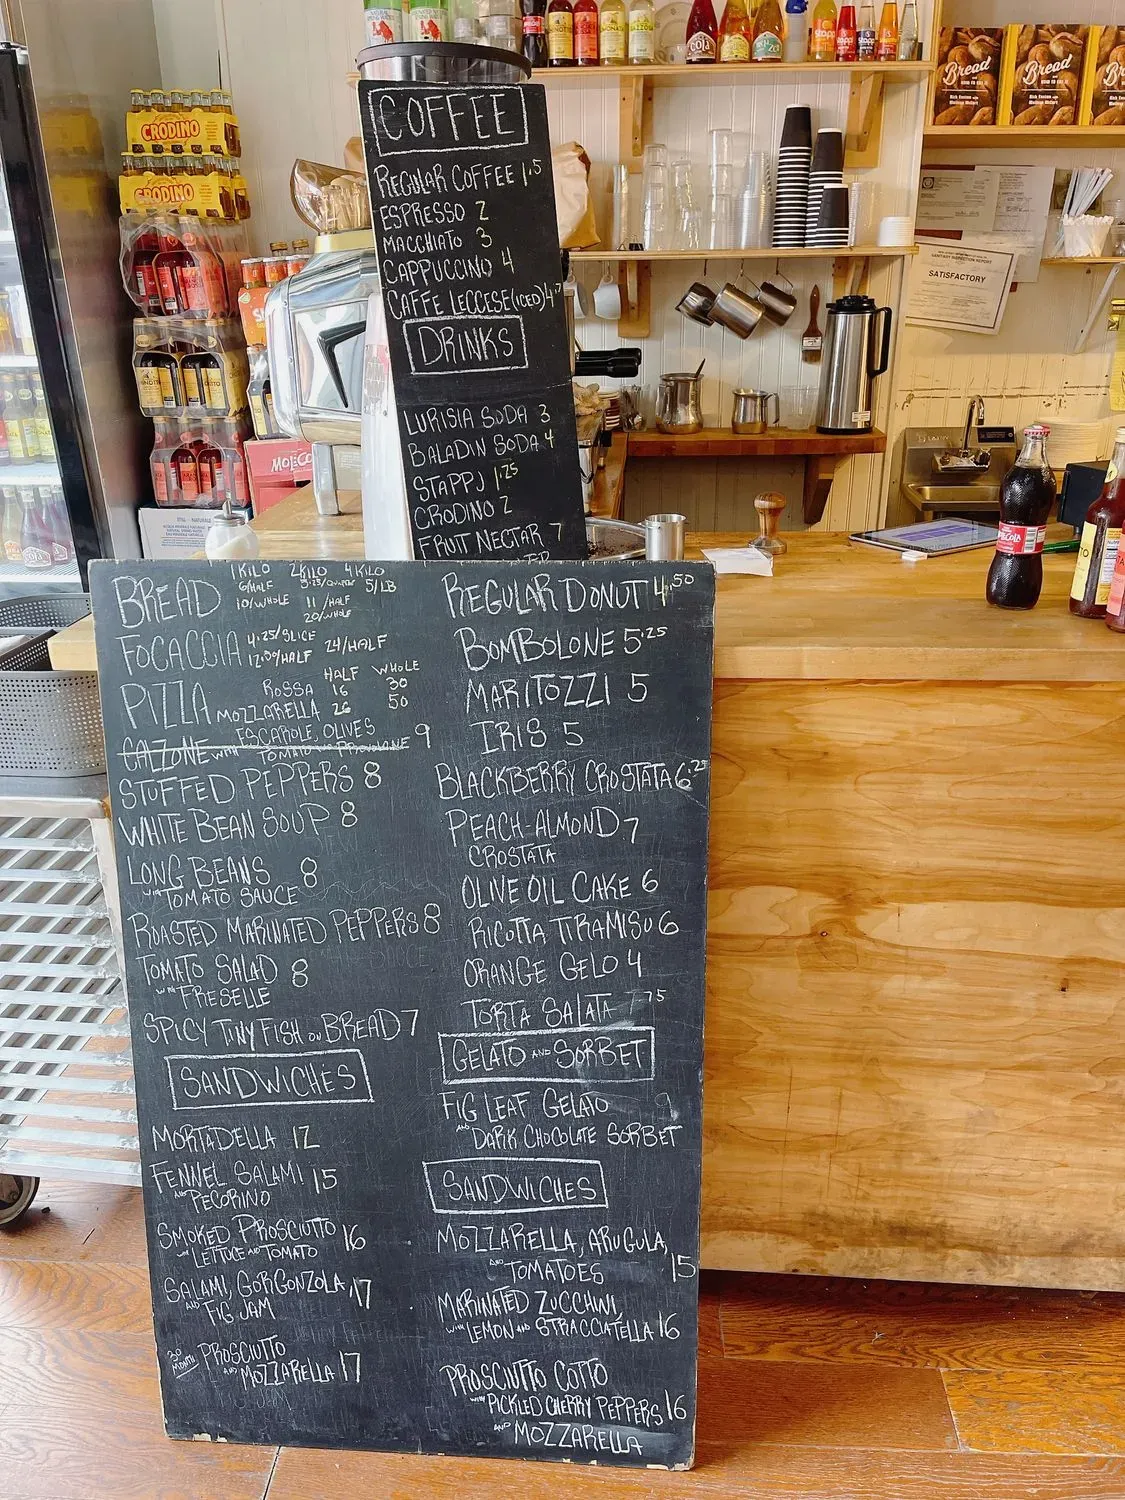 COFFEE
REGULAR COFFEE 1.5
ESPRESSO 2
MACCHIATO 3
CAPPUCCINO 4
CAFFE LECCESE (ICED) 4.7
DRINKS
LURISIA SODA 3
BALADIN SODA 4
STAPPJ 1.25
CRODINO 2
FRUIT NECTAR 7
BREAD 1KILO 2KILO 4KILO
6/HALF 5/LB
10/WHOLE 11/HALF
20/WHOLE
FOCACCIA 4.25/SLICE 24/HALF
12.50/HALF
HALF WHOLE
PIZZA ROSSA 16 30
MOZZARELLA 26 50
CALZONE WITH ESCAROLE, OLIVES 9
TOMATO PROVOLONE
STUFFED PEPPERS 8
WHITE BEAN SOUP 8
LONG BEANS 8
WITH TOMATO SAUCE
ROASTED MARINATED PEPPERS 8
TOMATO SALAD 8
WITH FRESELLE
SPICY TINY FISH ON BREAD 7
SANDWICHES
MORTADELLA 12
FENNEL SALAMI 15
AND PECORINO
SMOKED PROSCIUTTO 16
WITH LETTUCE AND TOMATO
SALAMI, GORGONZOLA, 17
AND FIG JAM
30 MONTH PROSCIUTTO
AND MOZZARELLA 17
REGULAR DONUT 4.50
BOMBOLONE 5.25
MARITOZZI 5
IRIS 5
BLACKBERRY CROSTATA 6.25
PEACH-ALMOND 7
CROSTATA
OLIVE OIL CAKE 6
RICOTTA TIRAMISU 6
ORANGE GELO 4
TORTA SALATA 7.75
GELATO AND SORBET
FIG LEAF GELATO 9
AND DARK CHOCOLATE SORBET
SANDWICHES
MOZZARELLA, ARUGULA,
AND TOMATOES 15
MARINATED ZUCCHINI,
WITH LEMON AND STRACCIATELLA 16
PROSCIUTTO COTTO
WITH PICKLED CHERRY PEPPERS 16
AND MOZZARELLA
CRODINO
CRODINO
MOLECOLA
Bread
Bread
SANITARY INSPECTION REPORT
SATISFACTORY